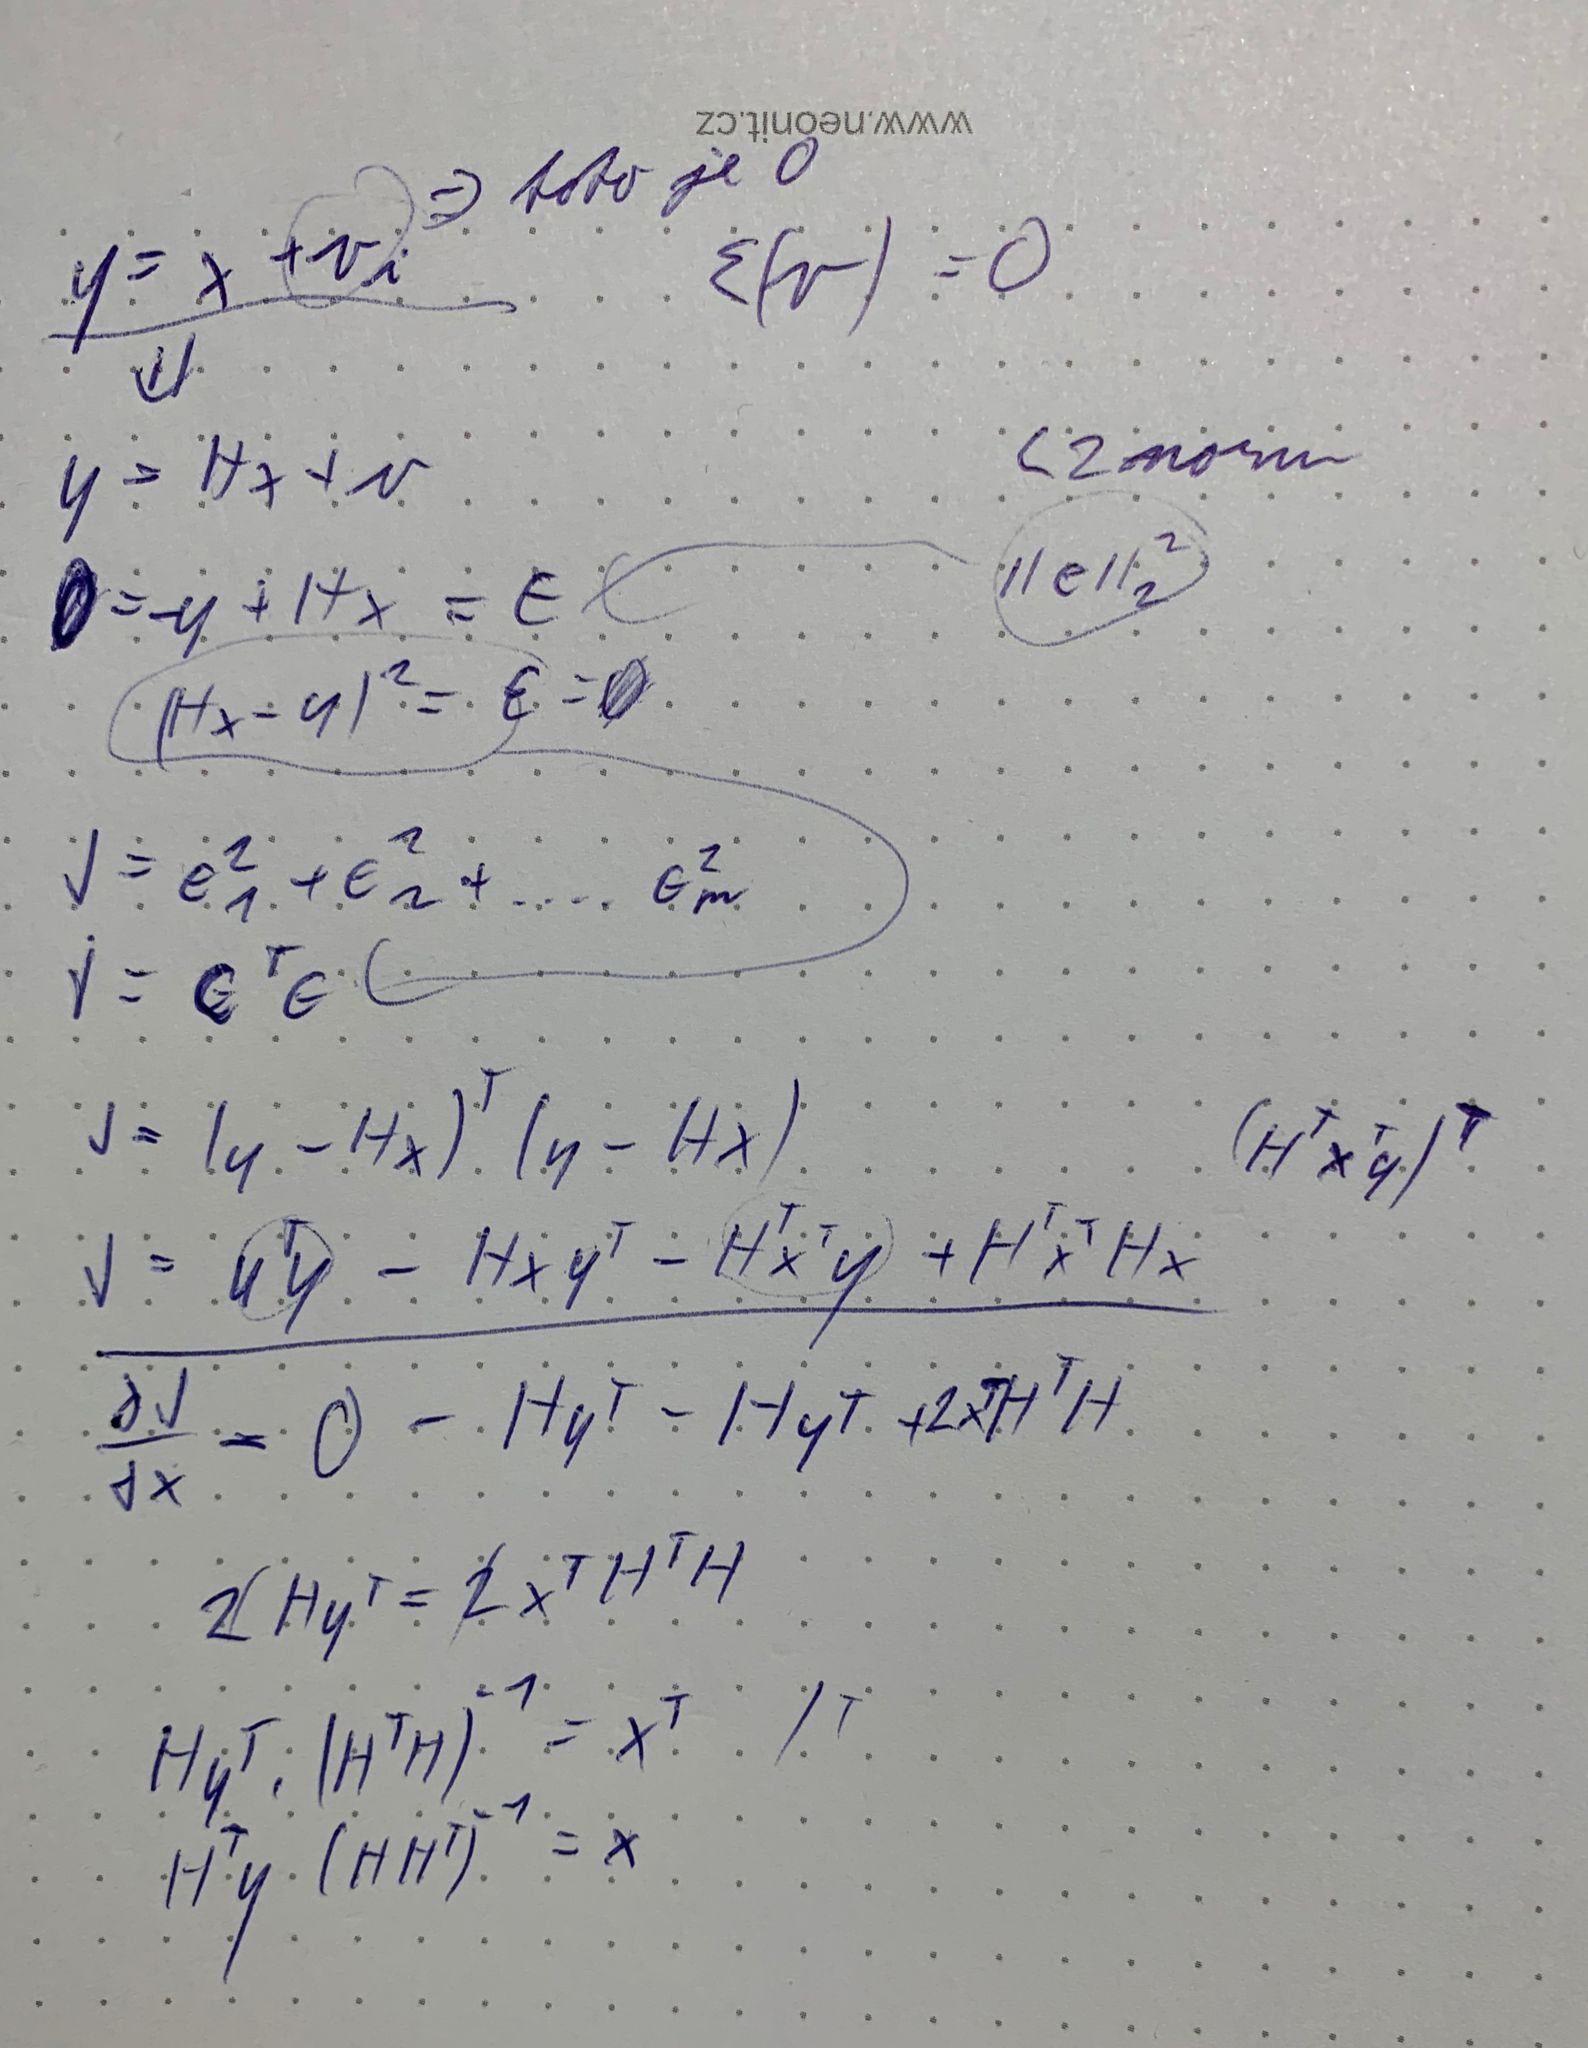 www.neonit.cz
y = x + v_i ⇒ toto je 0
Ɛ(v) = 0
⇓
y = Hx + v
L2 norm
0 = -y + Hx = ϵ
||e||₂²
(Hx - y)² = ϵ = 0
J = e₁² + ϵ₂² + ..... ϵₘ²
J = ϵᵀϵ
J = (y - Hx)ᵀ (y - Hx)
(Hᵀxᵀy)ᵀ
J = yᵀy - Hxyᵀ - Hᵀxᵀy + HᵀxᵀHx
∂J/∂x = 0 - Hyᵀ - Hyᵀ + 2xᵀHᵀH
2Hyᵀ = 2xᵀHᵀH
Hyᵀ · (HᵀH)⁻¹ = xᵀ /ᵀ
Hᵀy · (HHᵀ)⁻¹ = x